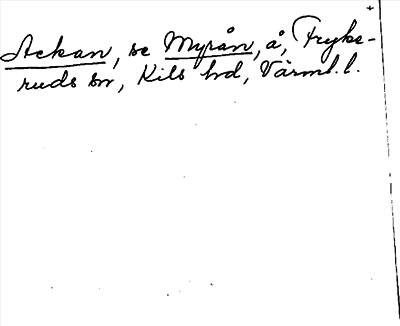 Ackan, se Myrån, å, Fryks-
ruds sn, Kils hd, Värml. l.